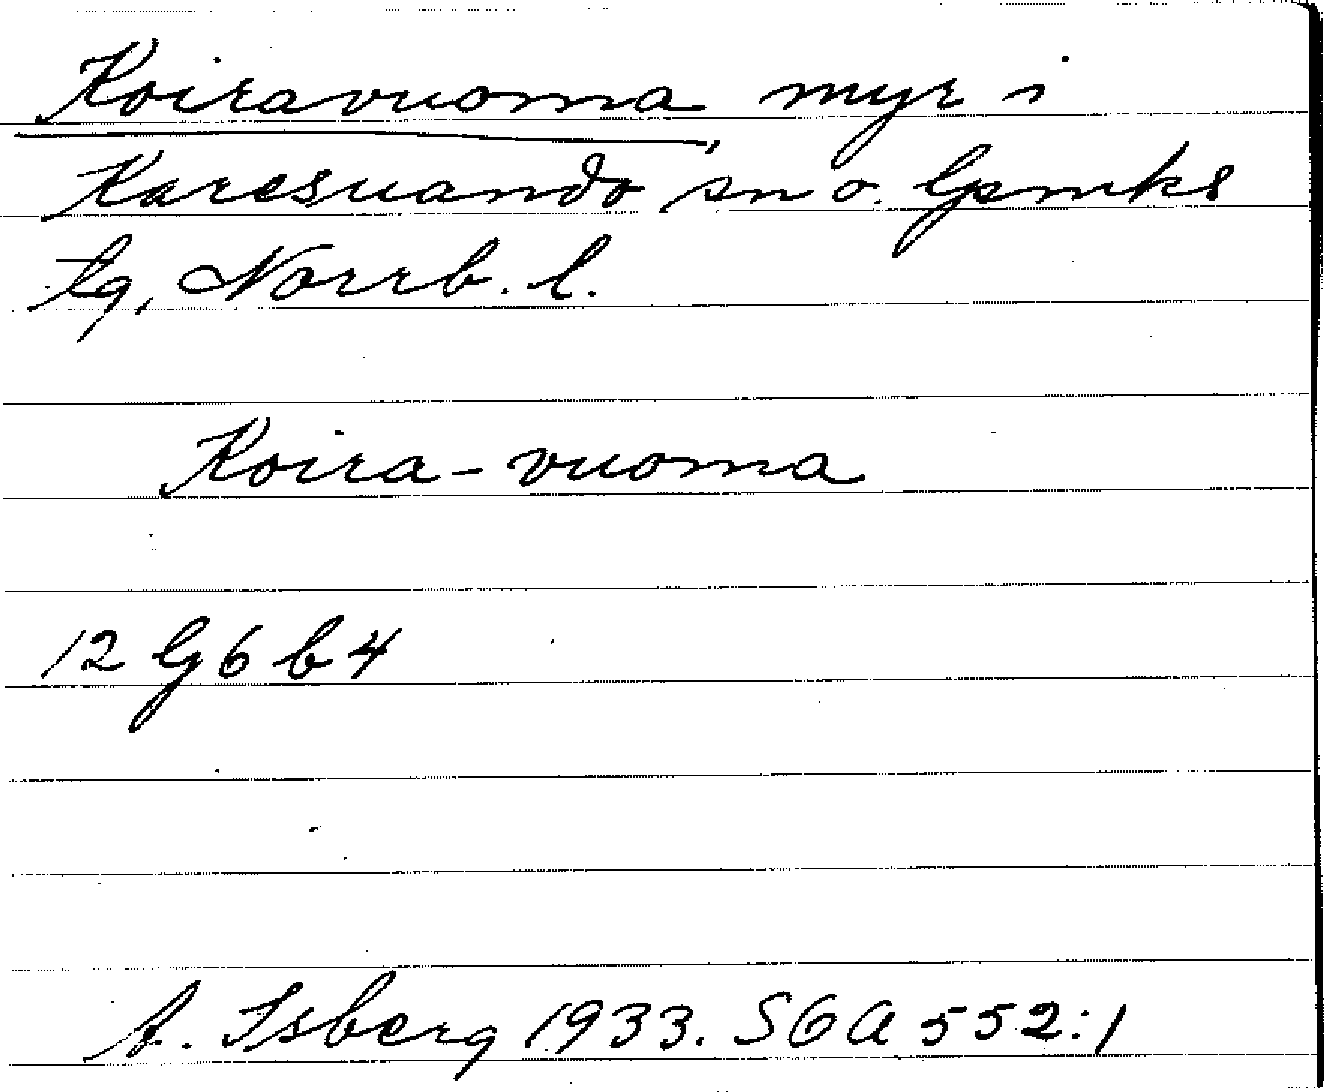 Koiravuoma, myr i
Karesuando sn o. lpmks
tg, Norrb. l.
Koira-vuoma
12 G 6 b 4
A. Isberg 1933. SOA 552:1